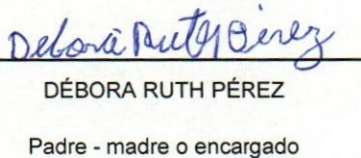 Débora Ruth Pérez
DÉBORA RUTH PÉREZ
Padre - madre o encargado